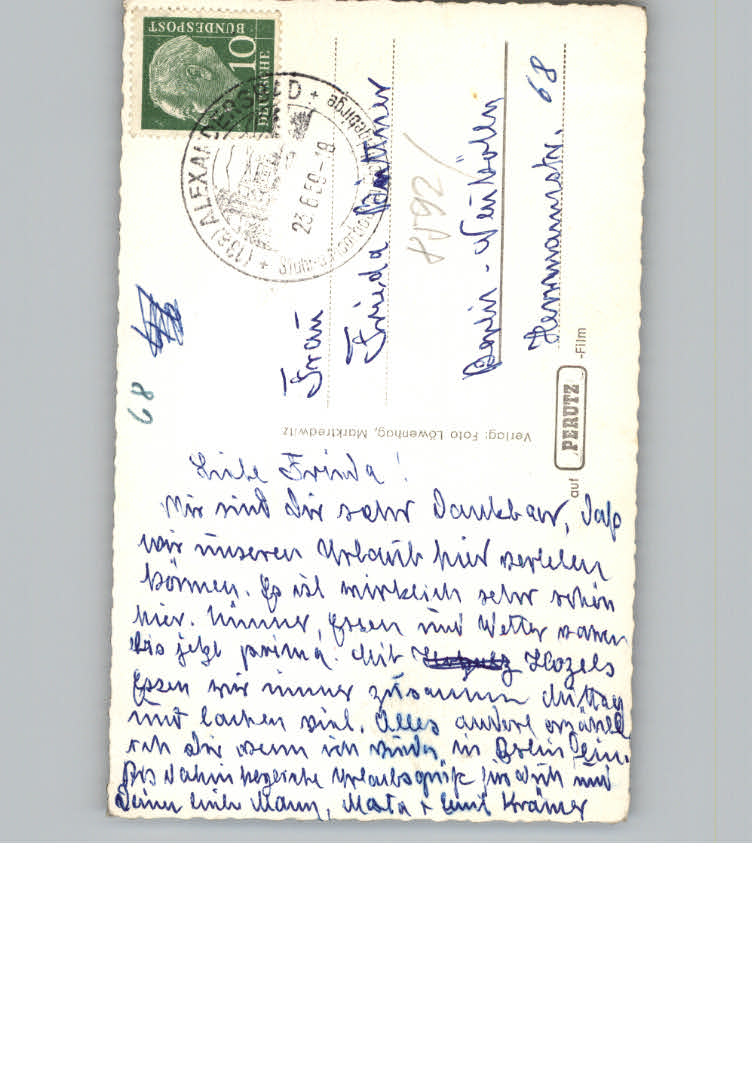 DEUTSCHE
BUNDESPOST
10
(13a) ALEXANDERSBAD +
23.6.59-18
Frau
Frieda Büttner
8592/
Berlin-Neukölln
Hermannstr. 68
68
Verlag: Foto Löwenhag, Marktredwitz
auf PERUTZ -Film
Liebe Frieda!
Wir sind Dir sehr Dankbar, daß
wir unseren Urlaub hier verleben
können. Es ist wirklich sehr schön
hier. Zimmer, Essen und Wetter waren
bis jetzt prima. Mit Hozels
Essen wir immer zusammen Mittag
und lachen viel. Alles andere erzähle
ich Dir wenn ich wieder in Berlin bin.
Bis dahin herzliche Urlaubsgrüße für Dich und
Deinen lieben Mann, Krämer